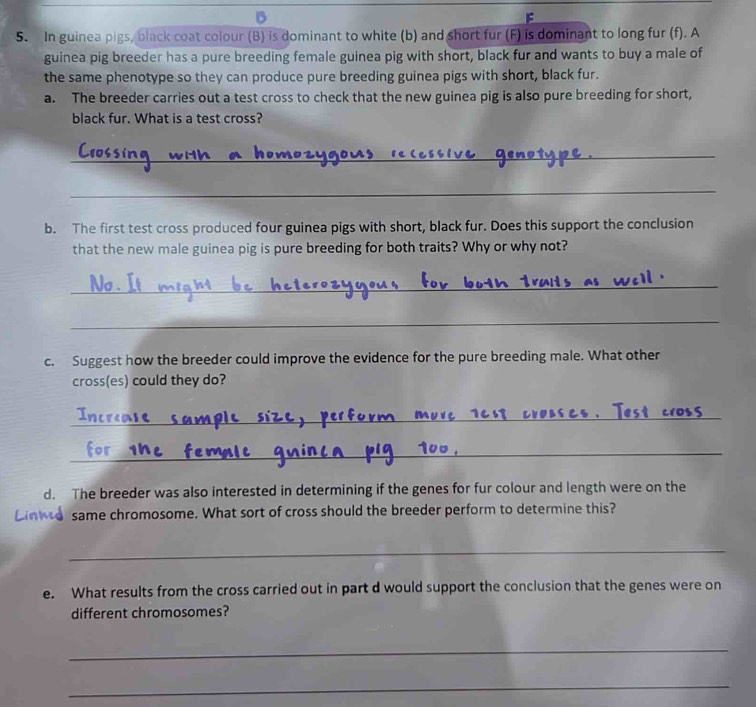 B F
5. In guinea pigs, black coat colour (B) is dominant to white (b) and short fur (F) is dominant to long fur (f). A
guinea pig breeder has a pure breeding female guinea pig with short, black fur and wants to buy a male of
the same phenotype so they can produce pure breeding guinea pigs with short, black fur.
a. The breeder carries out a test cross to check that the new guinea pig is also pure breeding for short,
black fur. What is a test cross?
Crossing with a homozygous recessive genotype.
b. The first test cross produced four guinea pigs with short, black fur. Does this support the conclusion
that the new male guinea pig is pure breeding for both traits? Why or why not?
No. It might be heterozygous for both traits as well.
c. Suggest how the breeder could improve the evidence for the pure breeding male. What other
cross(es) could they do?
Increase sample size, perform more test crosses. Test cross
for the female guinea pig too.
d. The breeder was also interested in determining if the genes for fur colour and length were on the
Linked same chromosome. What sort of cross should the breeder perform to determine this?
e. What results from the cross carried out in part d would support the conclusion that the genes were on
different chromosomes?